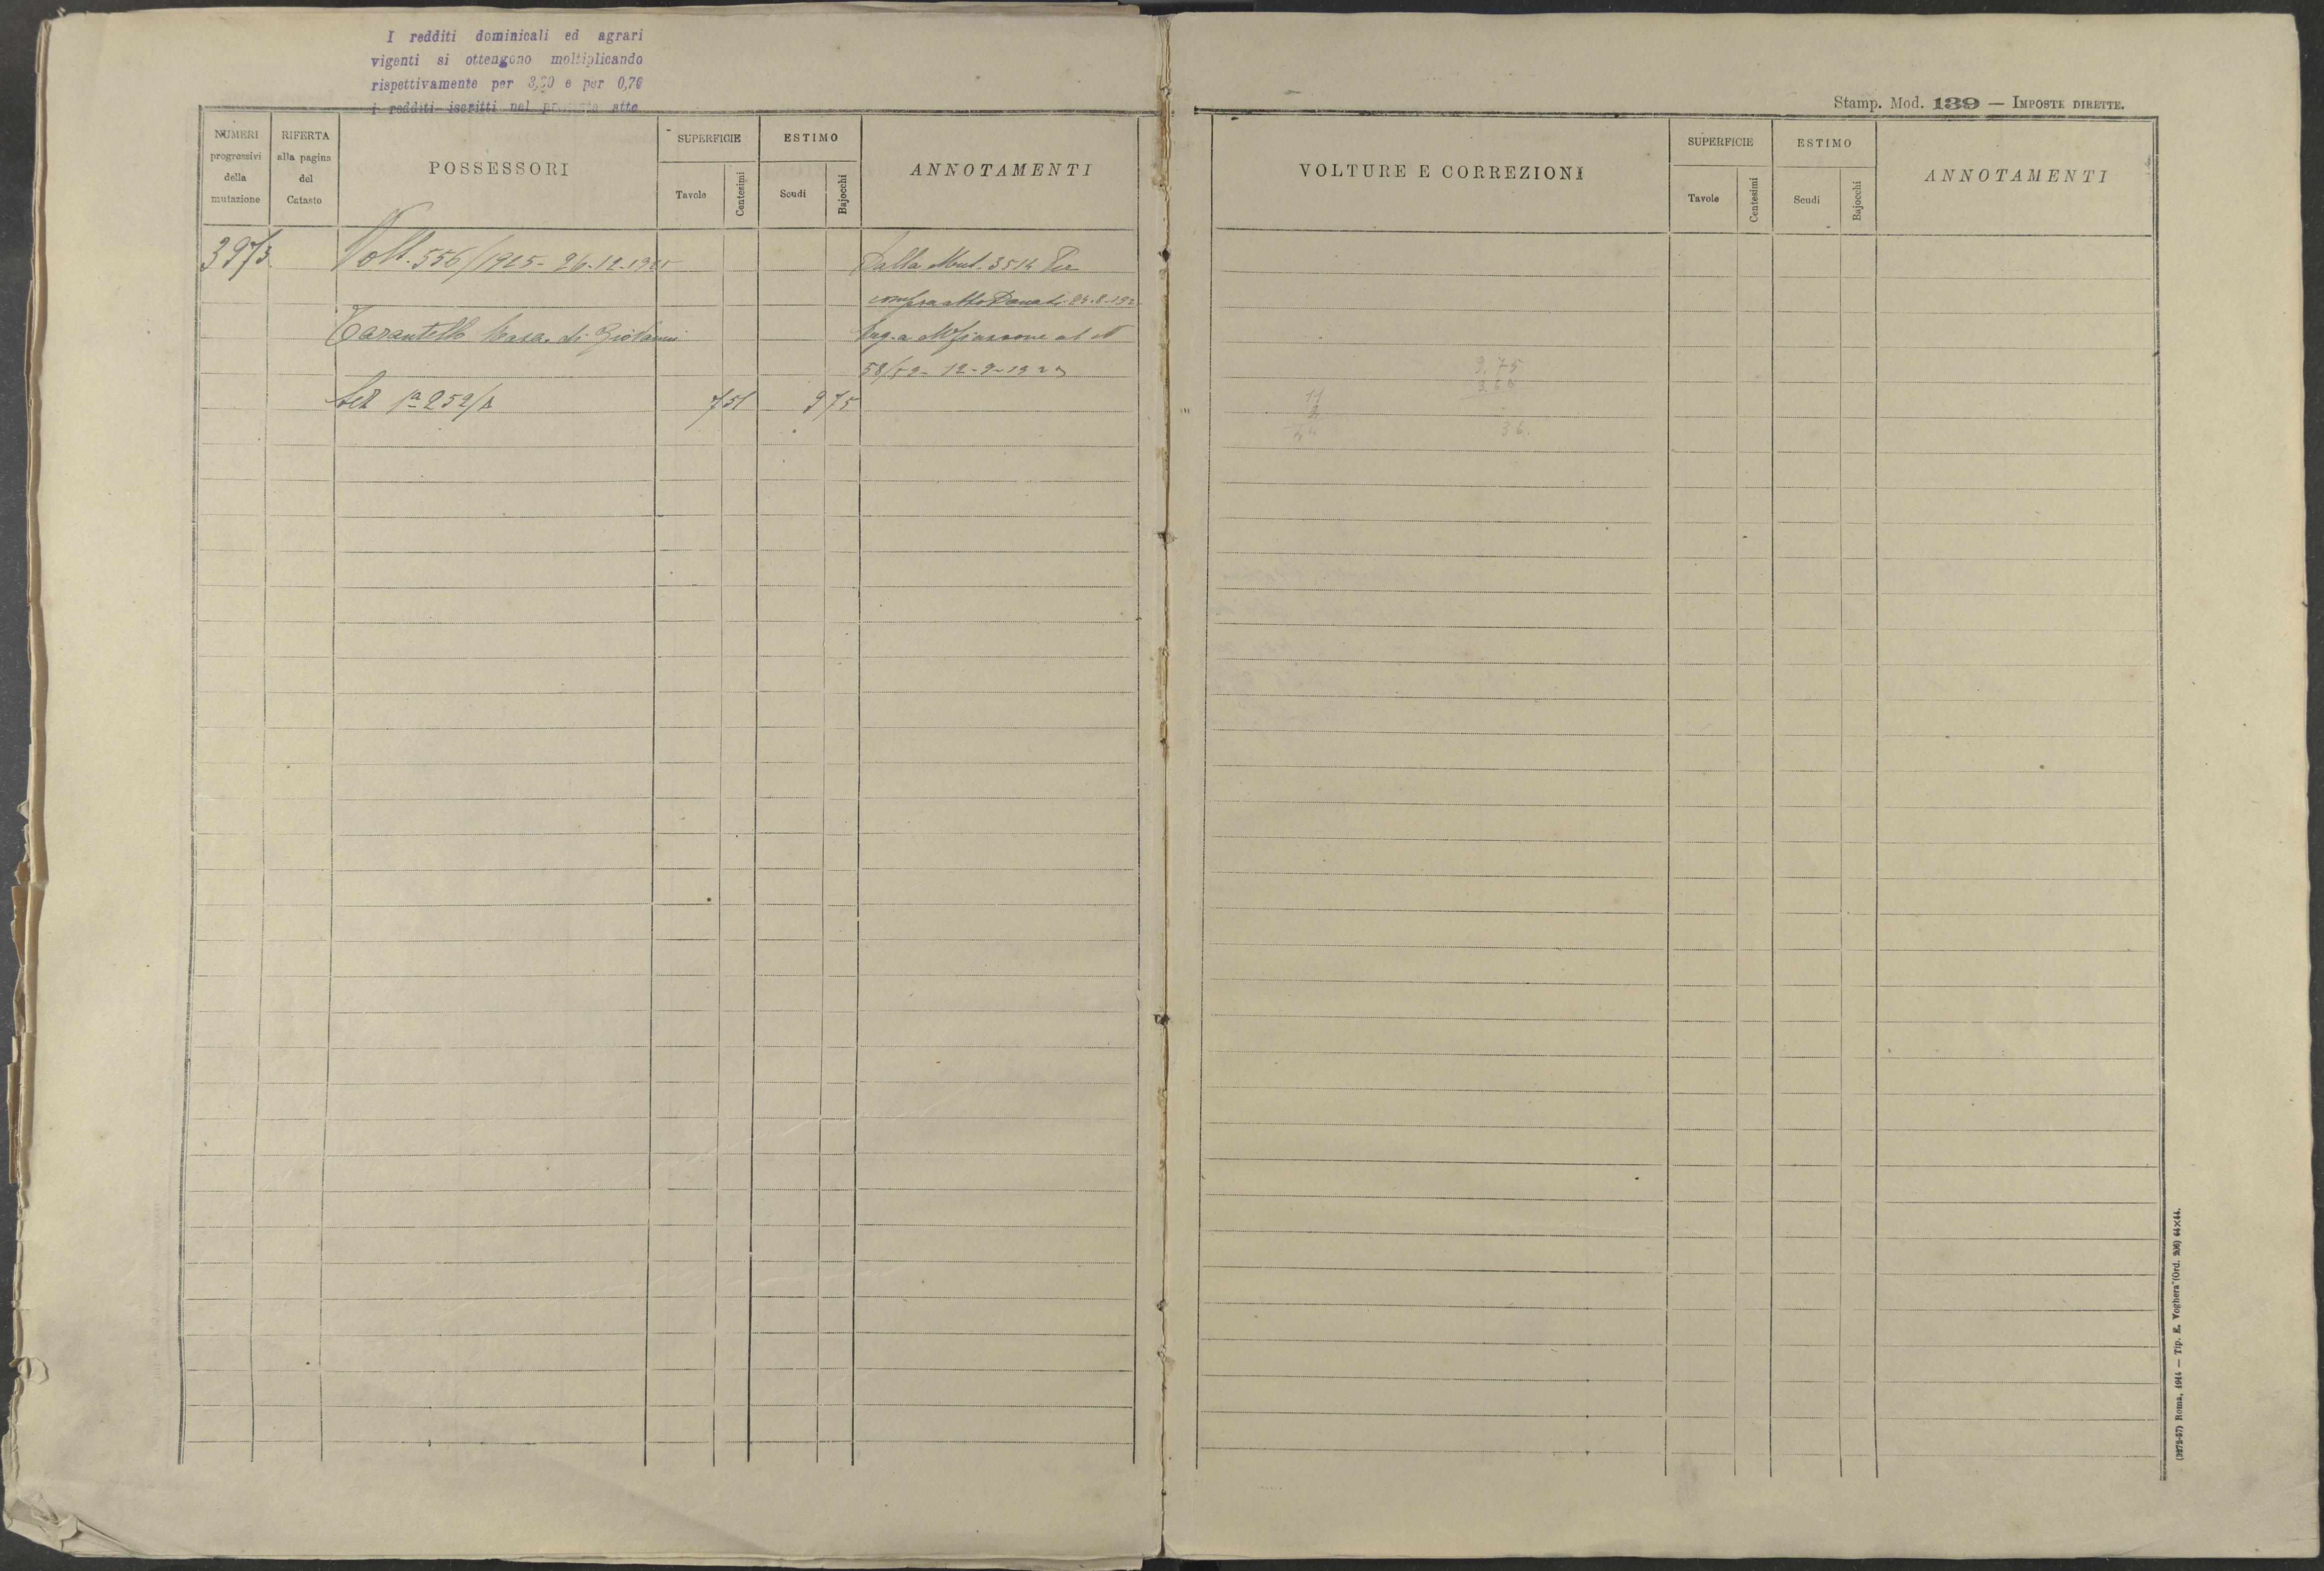 I redditi dominicali ed agrari
vigenti si ottengono moltiplicando
rispettivamente per e per 0,76
i redditi iscritti nel presente atto
NUMERI progressivi della mutazione
RIFERTA alla pagina del Catasto
POSSESSORI
SUPERFICIE
Tavole
Centesimi
ESTIMO
Scudi
Bajocchi
ANNOTAMENTI
3973
Volt. 556/1925 - 26-12-1925
Dalla Mut. 3514 Per
compra atto Donati 24-8-192
Tarantello di Giovanni
Reg. a al N
58/59 - 12-9-192
Sez 1a 252/A
7 51
9 75
Stamp. Mod. 139 — IMPOSTE DIRETTE.
VOLTURE E CORREZIONI
SUPERFICIE
Tavole
Centesimi
ESTIMO
Scudi
Bajocchi
ANNOTAMENTI
9,75
3.66
11
36.
(3272-57) Roma, 1914 — Tip. E. Voghera (Ord. 206) 64×44.